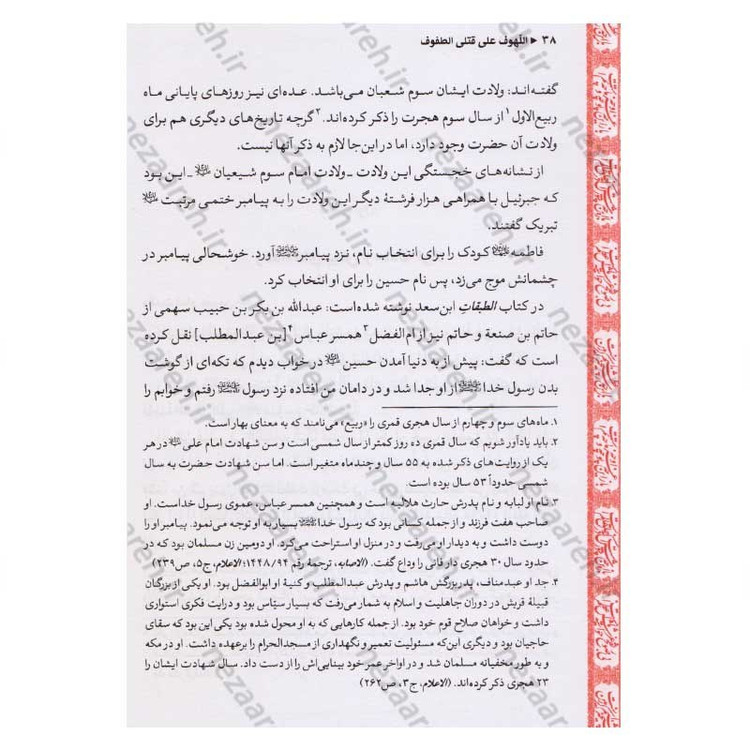 ۳۸ ◄ اللّهوف علی قتلی الطفوف
گفته‌اند: ولادت ایشان سوم شعبان می‌باشد. عده‌ای نیز روزهای پایانی ماه
ربیع‌الاول۱ از سال سوم هجرت را ذکر کرده‌اند.۲ گرچه تاریخ‌های دیگری هم برای
ولادت آن حضرت وجود دارد، اما در این‌جا لازم به ذکر آنها نیست.
از نشانه‌های خجستگی این ولادت ـ ولادت امام سوم شیعیان ـ این بود
که جبرئیل با همراهی هزار فرشتهٔ دیگر این ولادت را به پیامبر ختمی مرتبت ﷺ
تبریک گفتند.
فاطمه کودک را برای انتخاب نام، نزد پیامبر ﷺ آورد. خوشحالی پیامبر در
چشمانش موج می‌زد، پس نام حسین را برای او انتخاب کرد.
در کتاب الطبقاتِ ابن‌سعد نوشته شده‌است: عبدالله بن بکر بن حبیب سهمی از
حاتم بن صنعة و حاتم نیز از ام‌الفضل۳ همسر عباس۴ [بن عبدالمطلب] نقل کرده
است که گفت: پیش از به دنیا آمدن حسین در خواب دیدم که تکه‌ای از گوشت
بدن رسول خدا ﷺ از او جدا شد و در دامان من افتاده نزد رسول ﷺ رفتم و خوابم را
۱. ماه‌های سوم و چهارم از سال هجری قمری را «ربیع» می‌نامند که به معنای بهار است.
۲. باید یادآور شویم که سال قمری ده روز کمتر از سال شمسی است و سن شهادت امام علی در هر
یک از روایت‌های ذکر شده به ۵۵ سال و چندماه متغیر است. اما سن شهادت حضرت به سال
شمسی حدوداً ۵۳ سال بوده است.
۳. نام او لبابه و نام پدرش حارث هلالیه است و همچنین همسر عباس، عموی رسول خداست. او
صاحب هفت فرزند و از جمله کسانی بود که رسول خدا ﷺ بسیار به او توجه می‌نمود. پیامبر او را
دوست داشت و به دیدار او می‌رفت و در منزل او استراحت می‌کرد. او دومین زن مسلمان بود که در
حدود سال ۳۰ هجری دار فانی را وداع گفت. (الاصابه، ترجمهٔ رقم ۱۴۴۸/۹۴؛ الاعلام، ج۵، ص۲۳۹)
۴. جد او عبدمناف، پدربزرگش هاشم و پدرش عبدالمطلب و کنیهٔ او ابوالفضل بود. او یکی از بزرگان
قبیلهٔ قریش در دوران جاهلیت و اسلام به شمار می‌رفت که بسیار سیّاس بود و درایت فکری استواری
داشت و خواهان صلاح قوم خود بود. از جمله کارهایی که به او محول شده بود یکی این بود که سقای
حاجیان بود و دیگری این‌که مسئولیت تعمیر و نگهداری از مسجدالحرام را بر عهده داشت. او در مکه
و به طور مخفیانه مسلمان شد و در اواخر عمر خود بینایی‌اش را از دست داد. سال شهادت ایشان را
۲۳ هجری ذکر کرده‌اند. (الاعلام، ج۳، ص۲۶۲)
nezaareh.ir